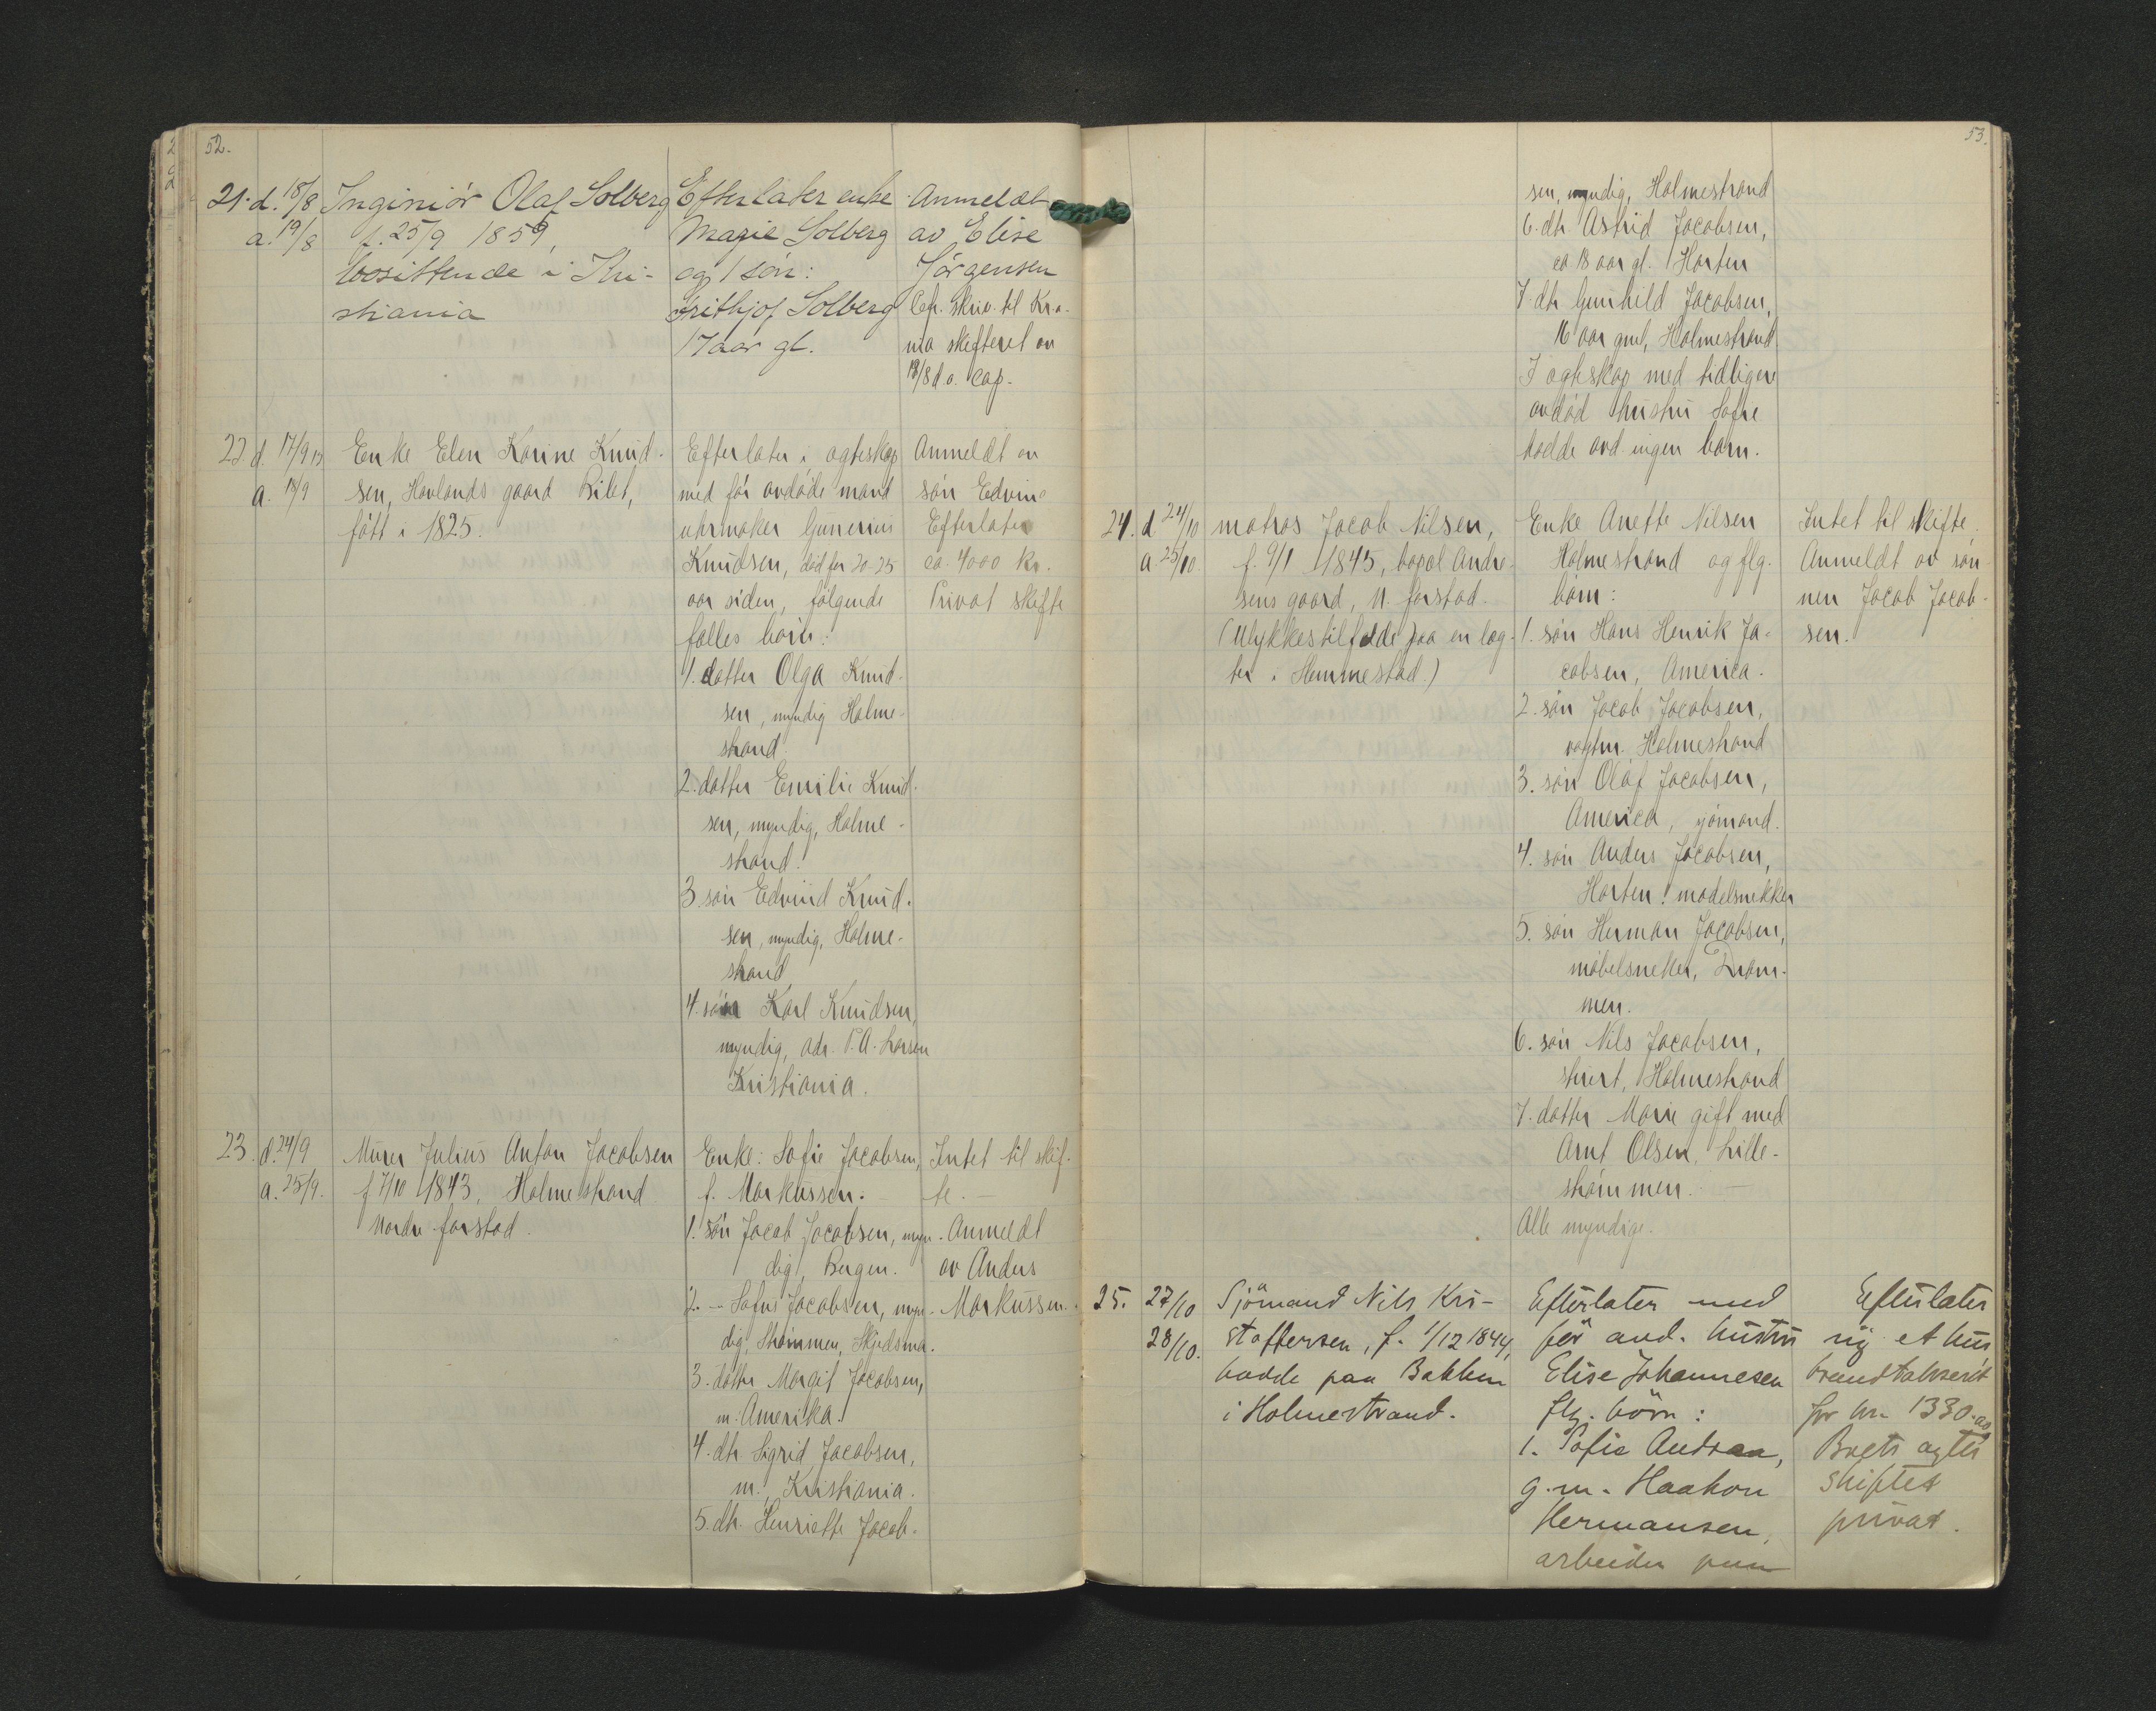 52.
21. d. 18/8 Inginiör Olaf Solberg
a. 19/8 f. 25/9 1859,
bosittende i Kri-
stiania
Efterlater enke
Marie Solberg
og 1 sön:
Frithjof Solberg
17 aar gl.
Anmeldt
av Elise
Jörgensen
Cfr. skriv. til Kr.a.
nia skifteret av
19/8 d.a. Cap.
22 d. 17/9 13 Enke Elen Karine Knud-
a. 18/9 sen, Havlands gaard Rilet,
fött i 1825.
Efterlater i ægteskap
med för avdöde mand
uhrmaker Gunerius
Knudsen, död for 20-25
aar siden, fölgende
fælles börn:
1. datter Olga Knud-
sen, myndig Holme-
strand.
2. datter Emilie Knud-
sen, myndig, Holme-
strand.
3. sön Edvind Knud-
sen, myndig, Holme-
strand
4. sön Karl Knudsen,
myndig, adr. P.A. Larsen
Kristiania.
Anmeldt av
sön Edvin
Efterlater
ca. 4000 kr.
Privat skifte
23. d. 24/9 Murer Julius Anton Jacobsen
a. 25/9. f 7/10 1843, Holmestrand
Nordre forstad.
Enke: Sofie Jacobsen,
f. Markussen.
1. Sön Jacob Jacobsen, myn-
dig, Bergen.
2. - Sofus Jacobsen, myn-
dig, Strömmen, Skjedsmo.
3. datter Margit Jacobsen,
m. Amerika.
4. dtr. Sigrid Jacobsen,
m., Kristiania.
5. dtr. Henriette Jacob-
Intet til skif-
te. -
Anmeldt
av Anders
Markussen.
53.
sen, myndig, Holmestrand
6. dtr. Astrid Jacobsen,
ca 18 aar gl. Horten
7. dtr Gunhild Jacobsen,
16 aar gml, Holmestrand
I ægteskap med tidligere
avdöd hustru Sofie
hadde avd. ingen barn.
24. d 24/10 matros Jacob Nilsen,
a 25/10. f. 9/1 1845, bopæl Andre-
sens gaard, N. forstad.
(Ulykkestilfælde paa en læg-
ter i Hemmestad.)
Enke Anette Nilsen
Holmestrand og flg.
börn:
1. sön Hans Henrik Ja-
cobsen, America.
2. sön Jacob Jacobsen,
vagtm. Holmestrand
3. sön Olaf Jacobsen,
America, sjömand.
4. sön Anders Jacobsen,
Horten, modelsnekker
5. sön Herman Jacobsen,
möbelsnekker, Dram-
men.
6. sön Nils Jacobsen,
stuert, Holmestrand
7. datter Marie gift med
Arnt Olsen, Lille-
strömmen. -
Alle myndige.
Intet til skifte.
Anmeldt av sön-
nen Jacob Jacob-
sen.
25. 27/10 Sjömand Nils Kri-
28/10. stoffersen, f. 1/12 1844,
bodde paa Bakken
i Holmestrand.
Efterlater med
för avd. hustru
Elise Johannesen
flg. börn:
1. Sofie Andrea,
g. m. Haakon
Hermansen,
arbeider paa
Efterlater
sig et hus
brandtakseret
for kr. 1330.00
Boets agtes
skiftet
privat.